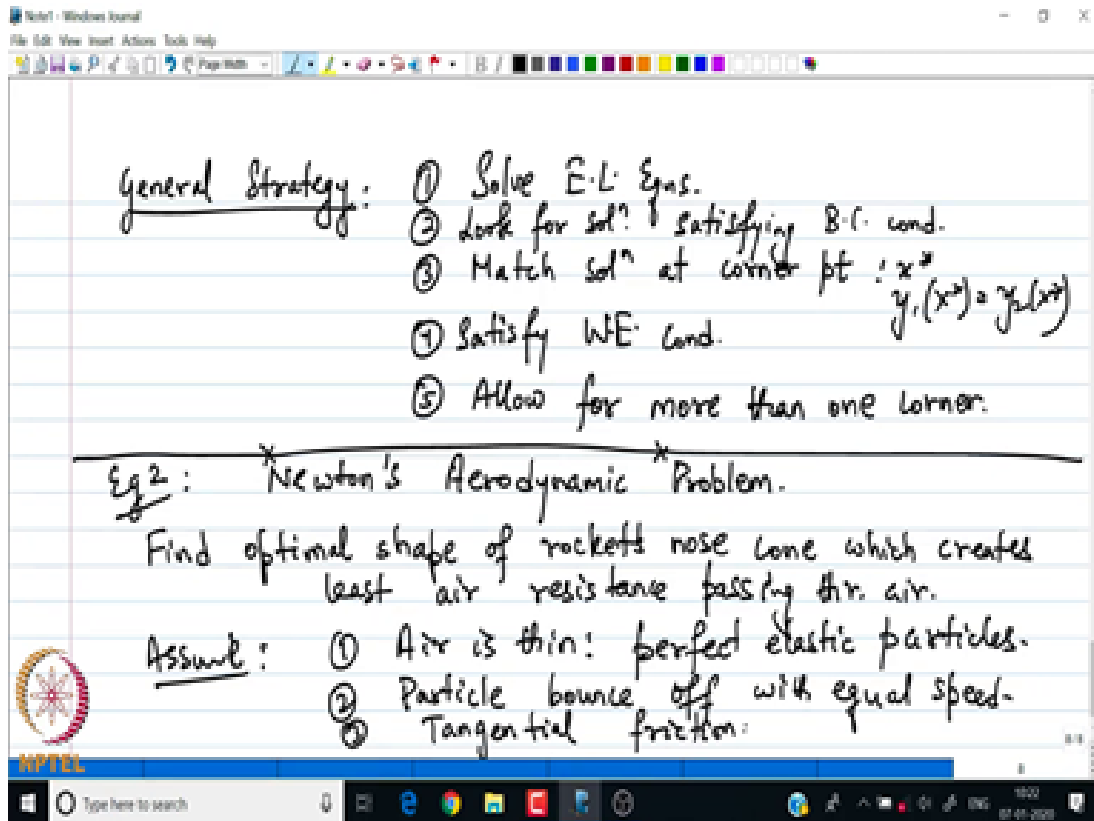 Note1 - Windows Journal
File Edit View Insert Actions Tools Help
Page Width
General Strategy: ① Solve E.L. Eqns.
② Look for solⁿ. satisfying B.C. cond.
③ Match solⁿ at corner pt : x*
y₁(x*) = y₂(x*)
④ Satisfy W.E. cond.
⑤ Allow for more than one corner.
Eg 2: Newton's Aerodynamic Problem.
Find optimal shape of rockets nose cone which creates
least air resistance passing thr. air.
Assume: ① Air is thin: perfect elastic particles.
② Particle bounce off with equal speed.
③ Tangential friction.
NPTEL
8/8
8
Type here to search
ENG
10:22
07-01-2020